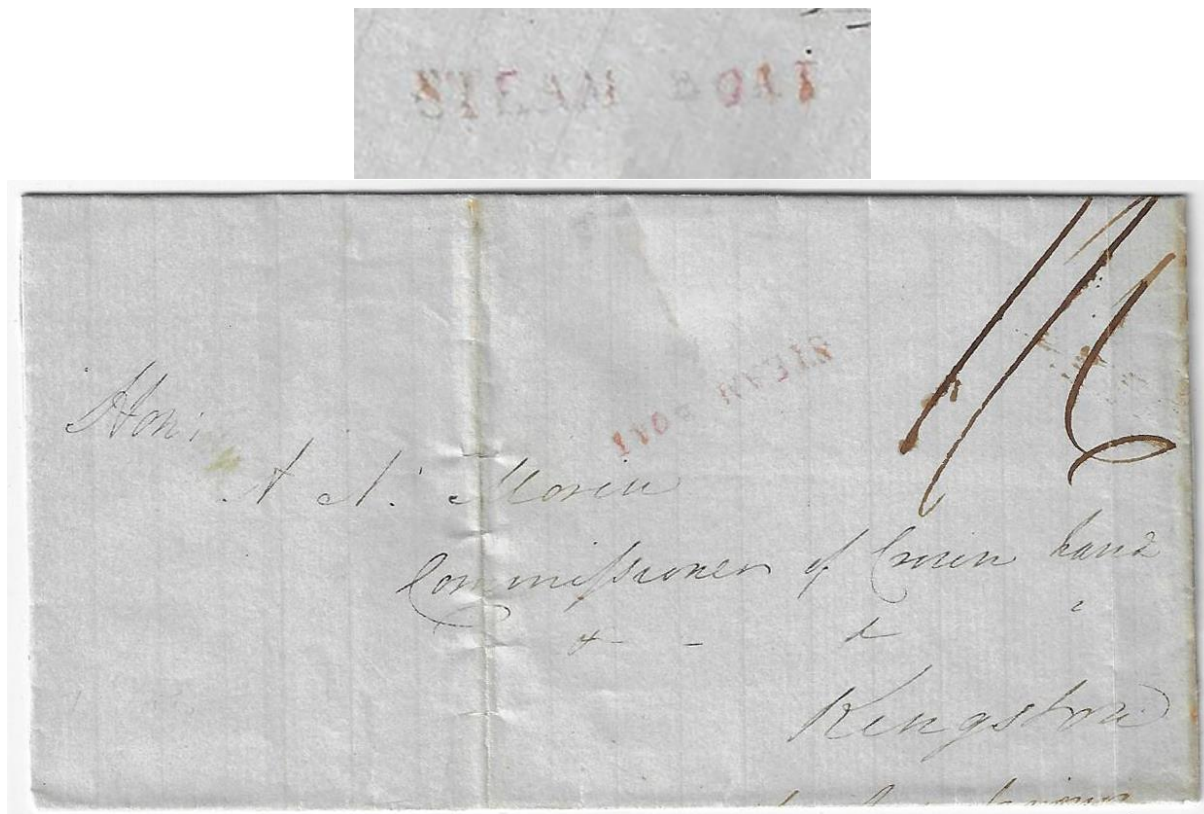 STEAM BOAT
STEAM BOAT
1/6
Honr
A N. Morin
Commissioner of Crown Land
Kingston